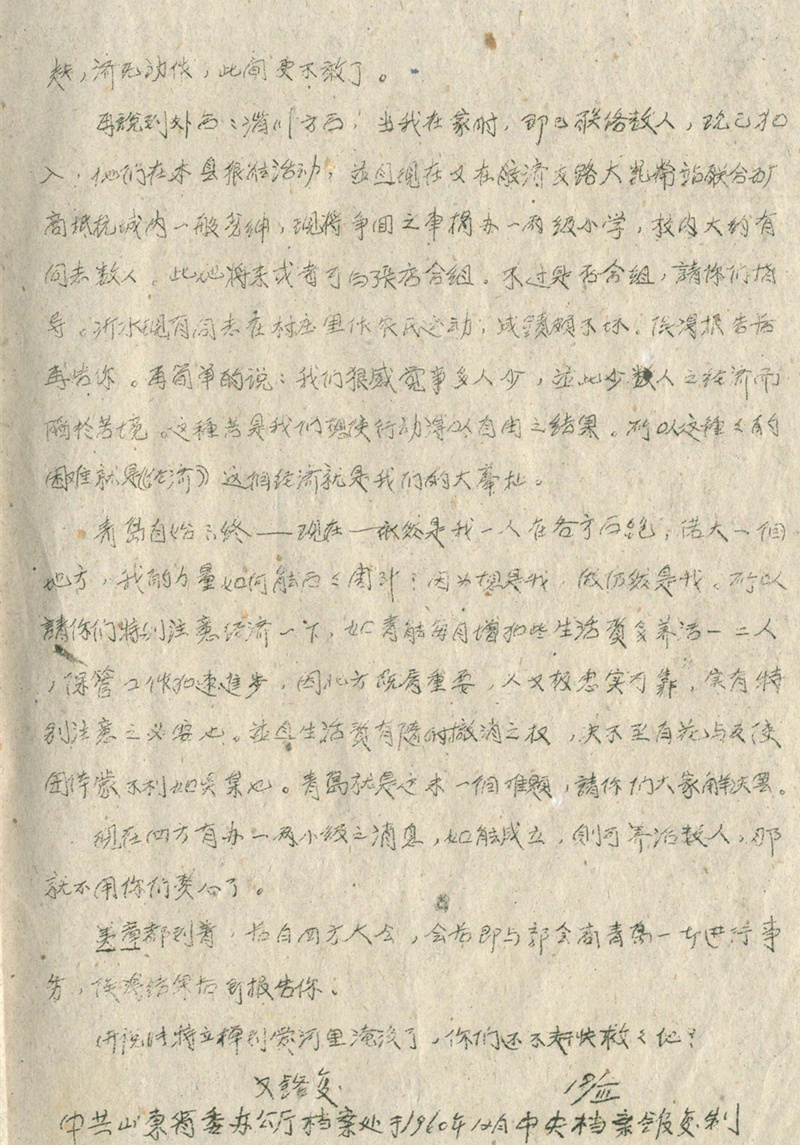 ，济无动伐，此间更不敢了。
再说到外面：淄川方面，当我在家时，即已联络数人，现已加
入，他们在本县很能活动，並且现在又在胶济支路大崑崙站联合矿
商抵抗城内一般劣绅，现将争回之事捐办一两级小学，校内大约有
同志数人。此地将来或者可与张店合组。不过是否合组，請你们指
导。沂水现有同志在村庄里作农民运动，成績頗不坏。俟得报告后
再告你。再简单的说：我们狠感覚事多人少，並此少数人之经济而
陷於苦境。这種苦是我们想使行动得以自由之结果。所以这種之的
困难就是《经济》这個经济就是我们的大障碍。
青島自始之终——现在——依然是我一人在各方应绝，偌大一個
地方，我的力量如何能应之周到？因为想是我，做仍然是我。所以
請你们特别注意经济一下，如青能每月增加些生活費多养活一二人
，保管工作加速進步，因此方既属重要，人又极忠实可靠，实有特
别注意之必要也。並且生活費有随时撤消之权，决不至白花与反使
团体蒙不利如吴某也。青島就是这末一個难题，請你们大家解决罢。
现在四方有办一两小级之消息，如能成立，则可养活数人，那
就不用你们费心了。
盖章都到青，后日四方大会，会后即与郭会商青島一切进行事
务，俟得结果后即报告你。
听说特立掉到黄河里淹没了，你们还不赶快救之他？
中共山東省委办公厅档案处于1960年12月中央档案舘复制